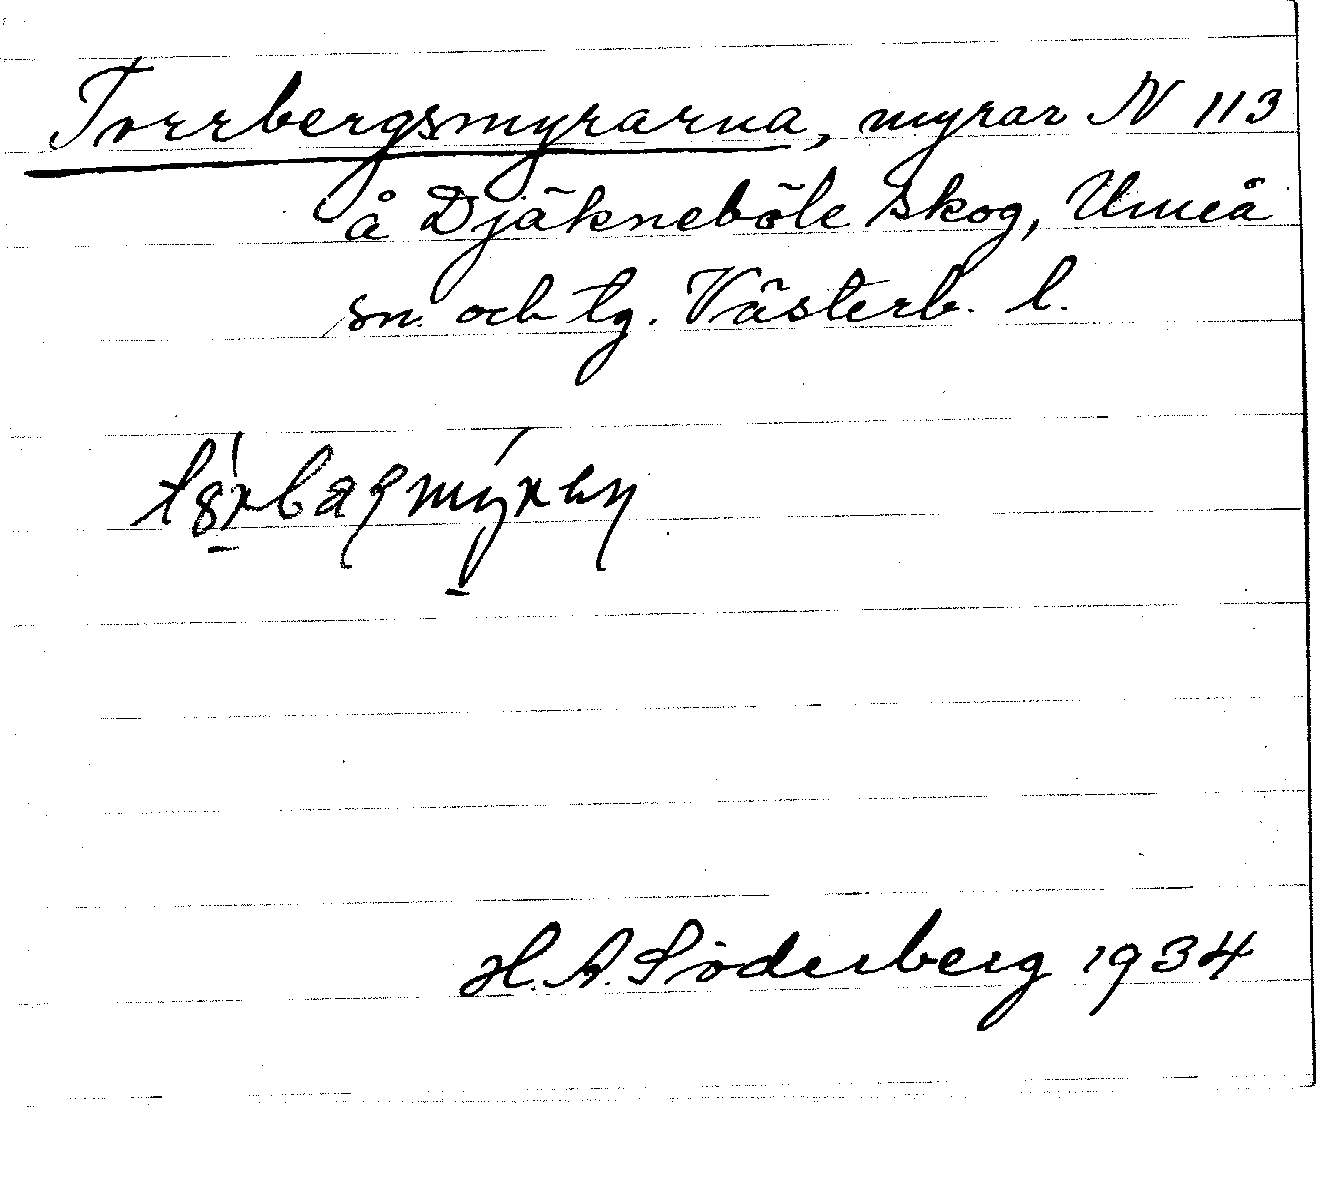 Torrbergsmyrarna, myrar N 113
å Djäkneböle skog, Umeå
sn. och tg. Västerb. l.
H. A. Söderberg 1934